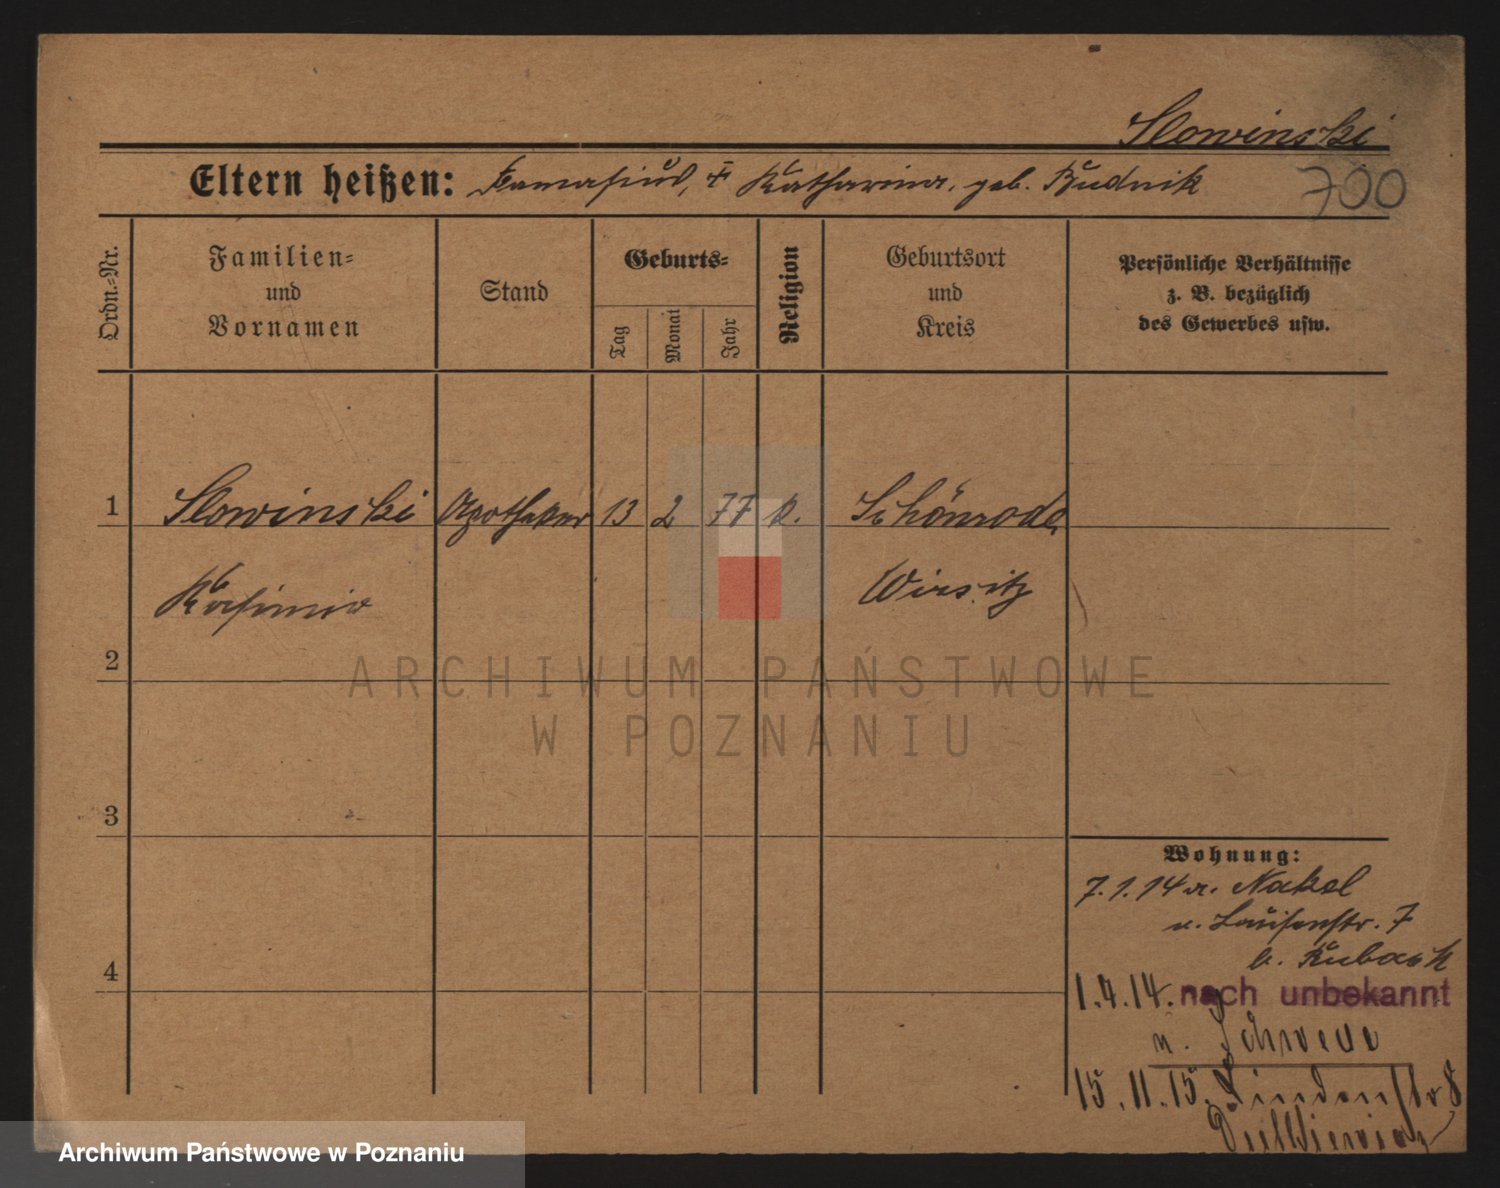 Slowinski
Eltern heißen: Damasius, ✝ Katharina, geb. Budnik
700
Ordn.-Nr.
Familien-
und
Vornamen
Stand
Geburts-
Tag
Monat
Jahr
Religion
Geburtsort
und
Kreis
Persönliche Verhältnisse
z. B. bezüglich
des Gewerbes usw.
1 Slowinski Apotheker 13 2 77 k. Schönrode
Kasimir Wirsitz
2
ARCHIWUM PAŃSTWOWE
W POZNANIU
3
Wohnung:
7.1.14 a. Nakel
n. Louisenstr. 7
b. Kuback
4
1.4.14. nach unbekannt
n.
15.11.15. Lindenstr 8
Archiwum Państwowe w Poznaniu